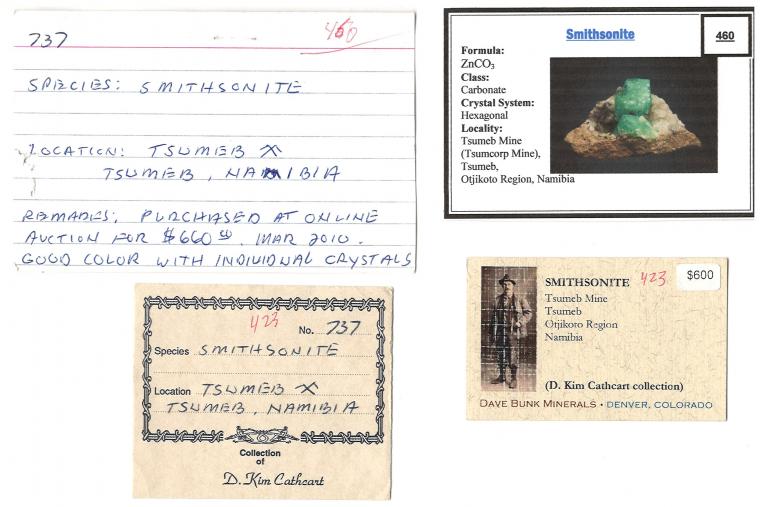 737
460
SPECIES: SMITHSONITE
LOCATION: TSUMEB
TSUMEB, NAMIBIA
REMARKS: PURCHASED AT ONLINE
AUCTION FOR $660 00. MAR 2010.
GOOD COLOR WITH INDIVIDUAL CRYSTALS
Smithsonite
460
Formula:
ZnCO3
Class:
Carbonate
Crystal System:
Hexagonal
Locality:
Tsumeb Mine
(Tsumcorp Mine),
Tsumeb,
Otjikoto Region, Namibia
423
No. 737
Species SMITHSONITE
Location TSUMEB
TSUMEB, NAMIBIA
Collection
of
D. Kim Cathcart
SMITHSONITE 423 $600
Tsumeb Mine
Tsumeb
Otjikoto Region
Namibia
(D. Kim Cathcart collection)
DAVE BUNK MINERALS • DENVER, COLORADO